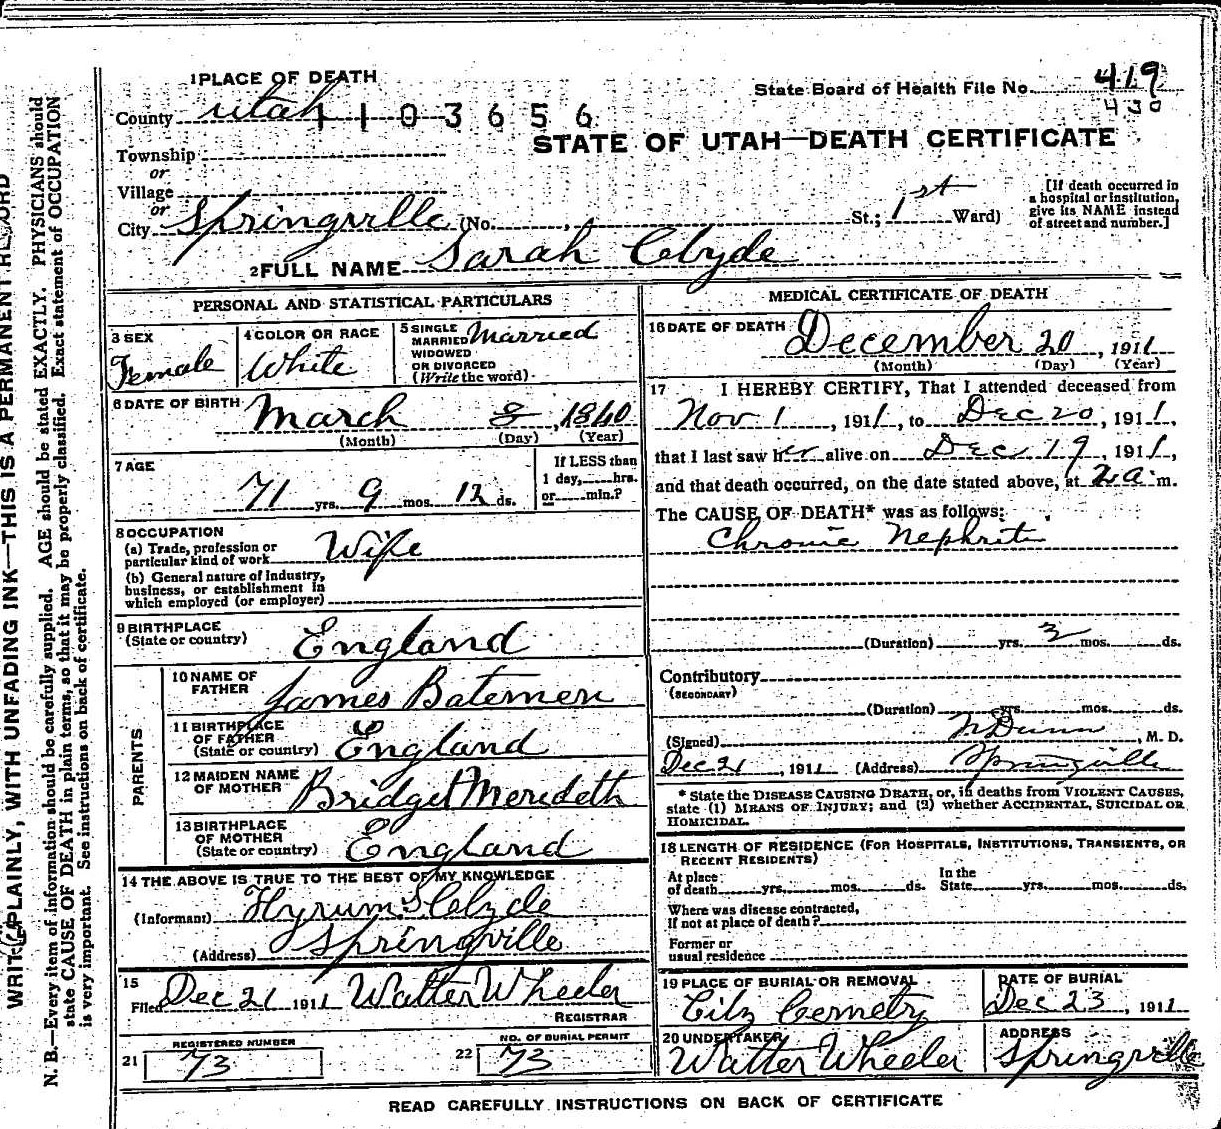 1 PLACE OF DEATH
County Utah 1103656
State Board of Health File No. 419
430
STATE OF UTAH—DEATH CERTIFICATE
Township
or
Village
or
City Springville (No. , St.; 1st Ward)
[If death occurred in
a hospital or institution,
give its NAME instead
of street and number.]
2 FULL NAME Sarah Clyde
PERSONAL AND STATISTICAL PARTICULARS
3 SEX
Female
4 COLOR OR RACE
White
5 SINGLE
MARRIED
WIDOWED
OR DIVORCED
(Write the word)
Married
6 DATE OF BIRTH March 8, 1840
(Month) (Day) (Year)
7 AGE
71 yrs. 9 mos. 12 ds.
If LESS than
1 day, hrs.
or min.?
8 OCCUPATION
(a) Trade, profession or
particular kind of work Wife
(b) General nature of Industry,
business, or establishment in
which employed (or employer)
9 BIRTHPLACE
(State or country) England
PARENTS
10 NAME OF
FATHER James Batemen
11 BIRTHPLACE
OF FATHER
(State or country) England
12 MAIDEN NAME
OF MOTHER Bridget Meredeth
13 BIRTHPLACE
OF MOTHER
(State or country) England
14 THE ABOVE IS TRUE TO THE BEST OF MY KNOWLEDGE
(Informant) Hyrum S Clyde
(Address) Springville
15
Filed Dec 21 1911 Walter Wheeler
REGISTRAR
REGISTERED NUMBER
21 73
NO. OF BURIAL PERMIT
22 73
MEDICAL CERTIFICATE OF DEATH
16 DATE OF DEATH December 20, 1911
(Month) (Day) (Year)
17 I HEREBY CERTIFY, That I attended deceased from
Nov 1, 1911, to Dec 20, 1911,
that I last saw her alive on Dec 19, 1911,
and that death occurred, on the date stated above, at 2 a m.
The CAUSE OF DEATH* was as follows:
Chronic Nephritis
(Duration) yrs. 3 mos. ds.
Contributory
(SECONDARY)
(Duration) yrs. mos. ds.
(Signed) Dunn, M. D.
Dec 21, 1911 (Address) Springville
* State the DISEASE CAUSING DEATH, or, in deaths from VIOLENT CAUSES,
state (1) MEANS OF INJURY; and (2) whether ACCIDENTAL, SUICIDAL OR
HOMICIDAL.
18 LENGTH OF RESIDENCE (FOR HOSPITALS, INSTITUTIONS, TRANSIENTS, OR
RECENT RESIDENTS)
At place
of death yrs. mos. ds.
In the
State yrs. mos. ds.
Where was disease contracted,
if not at place of death?
Former or
usual residence
19 PLACE OF BURIAL OR REMOVAL
City Cemetry
DATE OF BURIAL
Dec 23, 1911
20 UNDERTAKER
Walter Wheeler
ADDRESS
Springville
READ CAREFULLY INSTRUCTIONS ON BACK OF CERTIFICATE
WRITE PLAINLY, WITH UNFADING INK—THIS IS A PERMANENT RECORD
N. B.—Every item of information should be carefully supplied. AGE should be stated EXACTLY. PHYSICIANS should
state CAUSE OF DEATH in plain terms, so that it may be properly classified. Exact statement of OCCUPATION
is very important. See instructions on back of certificate.